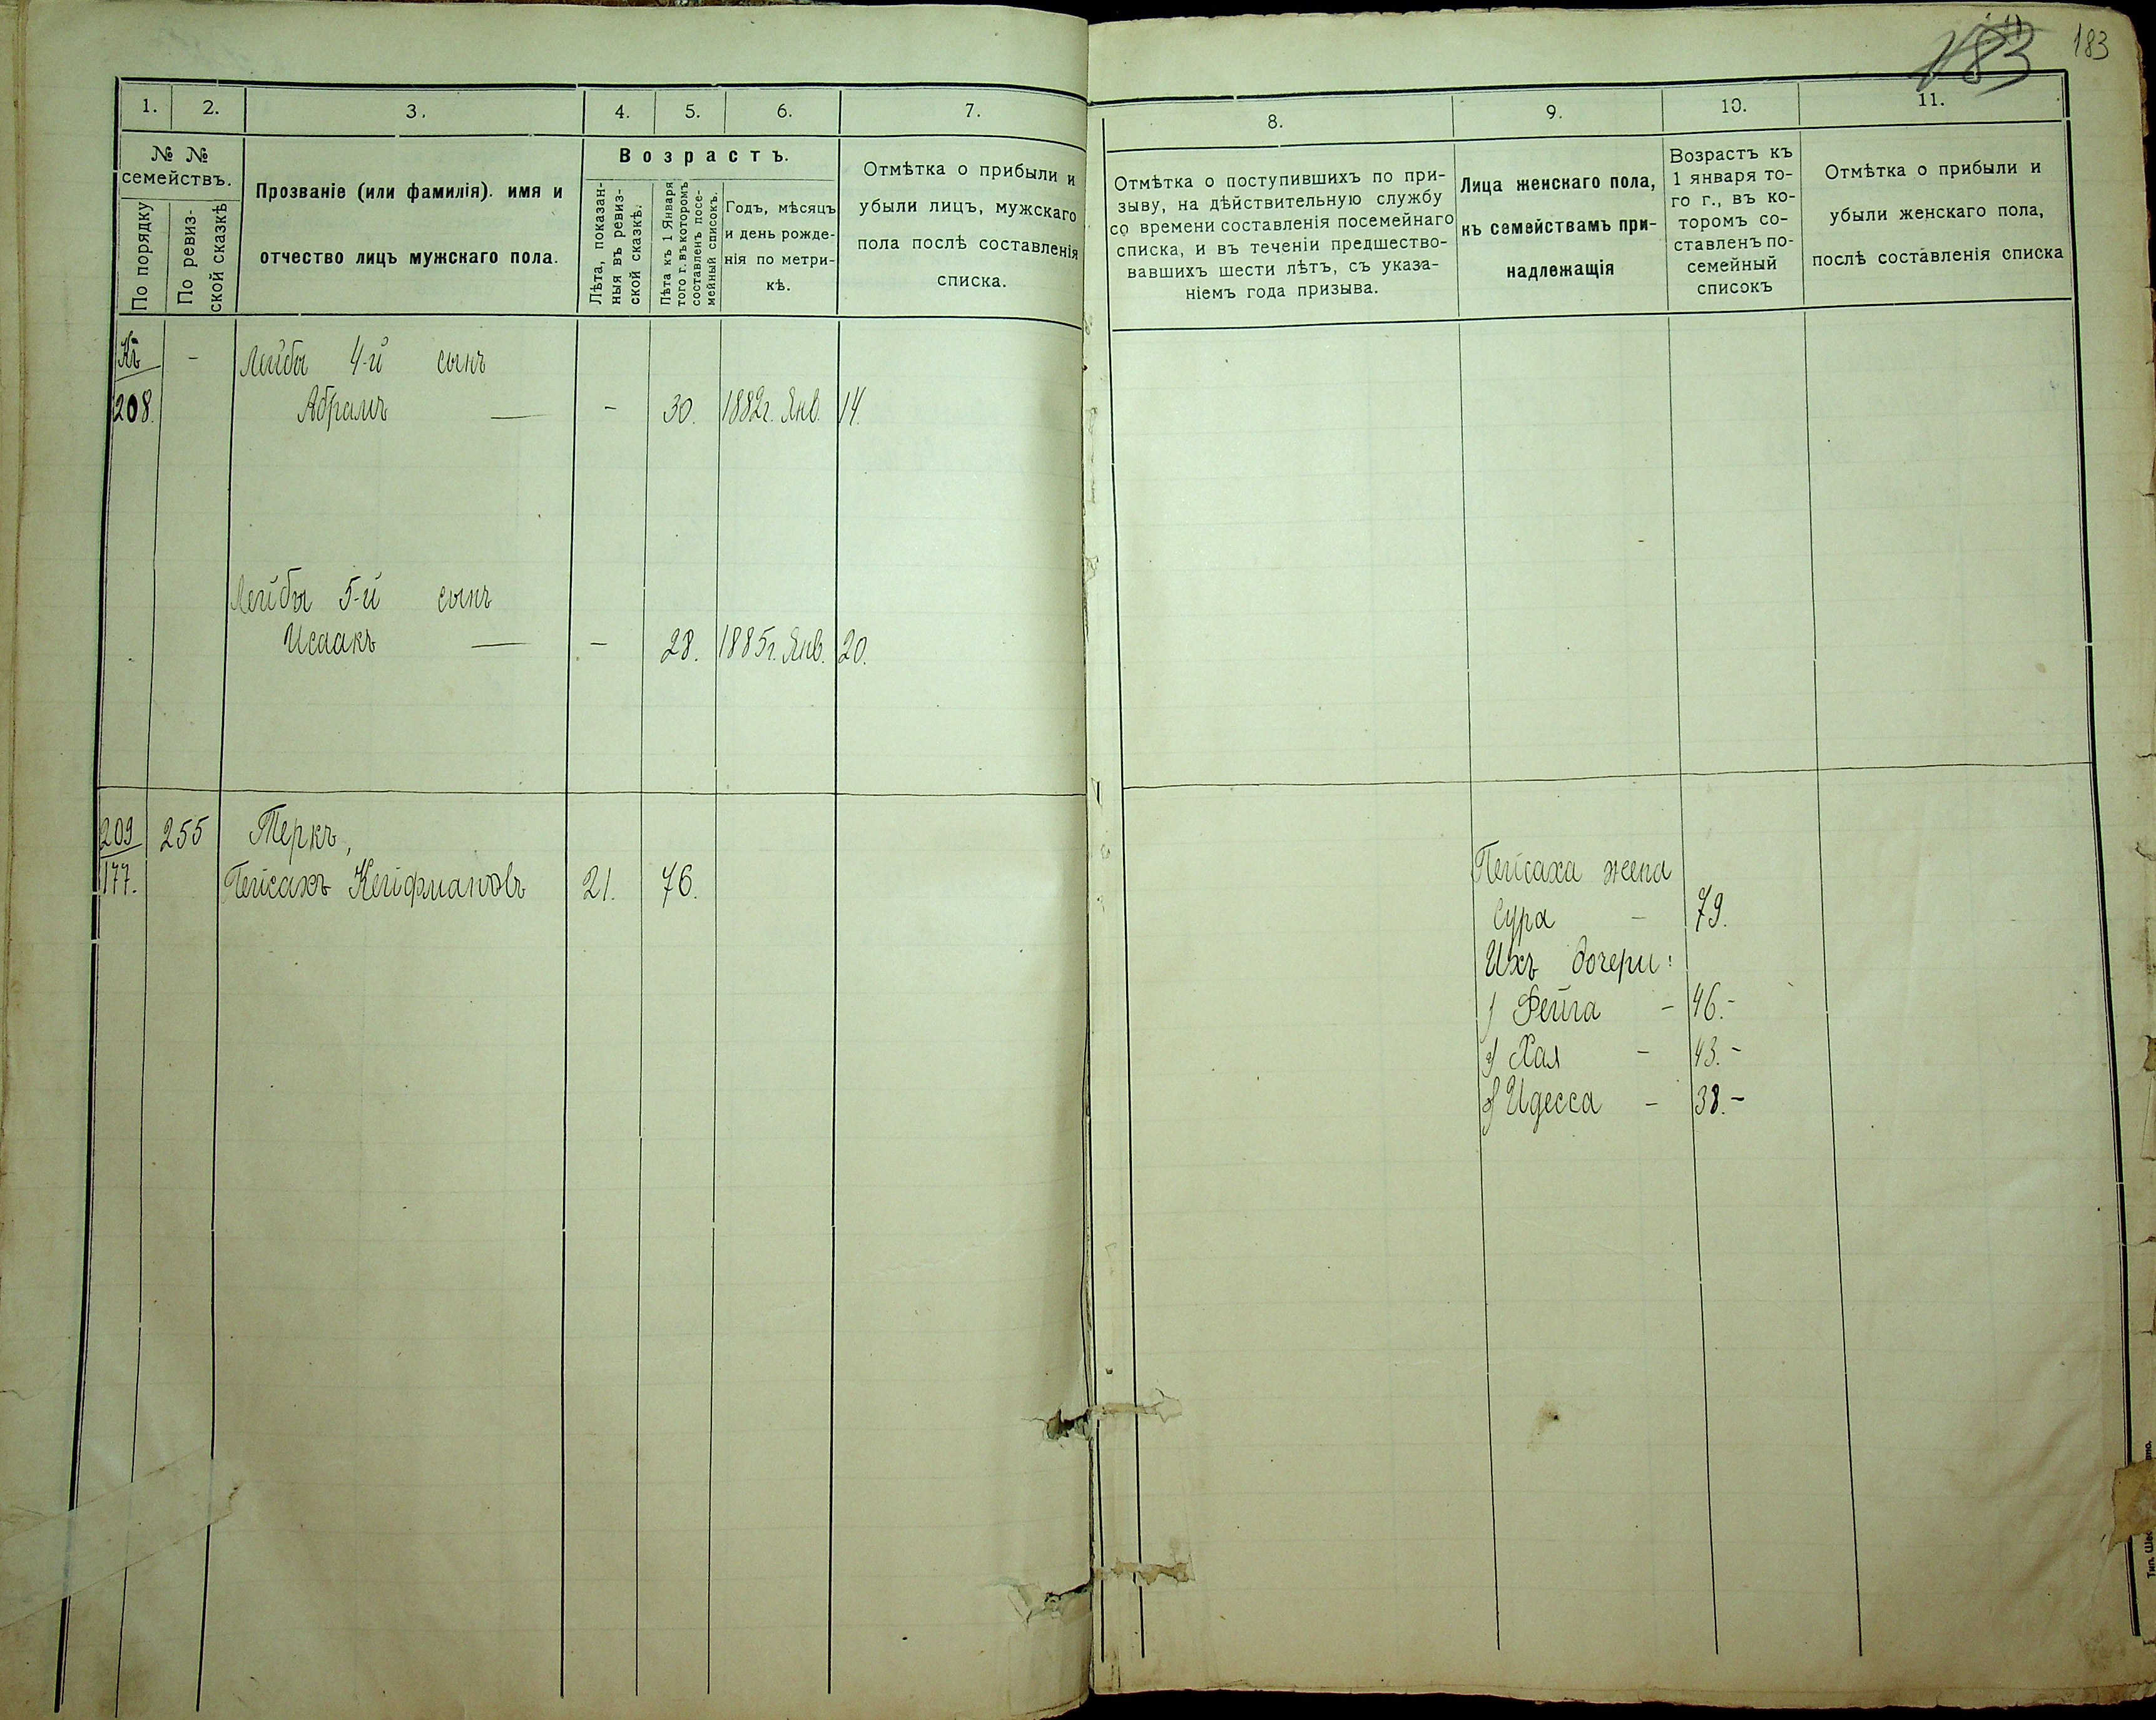 183 183
1. 2. 3. 4. 5. 6. 7.
№ №
семействъ.
По порядку
По ревиз-
ской сказкѣ
Прозваніе (или фамилія). имя и
отчество лицъ мужскаго пола.
Возрастъ.
Лѣта, показан-
ныя въ ревиз-
ской сказкѣ.
Лѣта къ 1 Января
того г. въ которомъ
составленъ посе-
мейный списокъ.
Годъ, мѣсяцъ
и день рожде-
нія по метри-
кѣ.
Отмѣтка о прибыли и
убыли лицъ, мужскаго
пола послѣ составленія
списка.
Къ - Лейбы 4-й сынъ
208. Абрамъ — - 30. 1882г. Янв. 14.
Лейбы 5-й сынъ
Исаакъ — - 28. 1885г. Янв. 20.
209 255 Теркъ,
177. Пейсахъ Кейфмановъ 21. 76.
8. 9. 10. 11.
Отмѣтка о поступившихъ по при-
зыву, на дѣйствительную службу
со времени составленія посемейнаго
списка, и въ теченіи предшество-
вавшихъ шести лѣтъ, съ указа-
ніемъ года призыва.
Лица женскаго пола,
къ семействамъ при-
надлежащія
Возрастъ къ
1 января то-
го г., въ ко-
торомъ со-
ставленъ по-
семейный
списокъ
Отмѣтка о прибыли и
убыли женскаго пола,
послѣ составленія списка
Пейсаха жена
Сура - 79.
Ихъ дочери:
1) Фейга - 46.-
2) Хая - 43.-
3) Идесса - 38.-